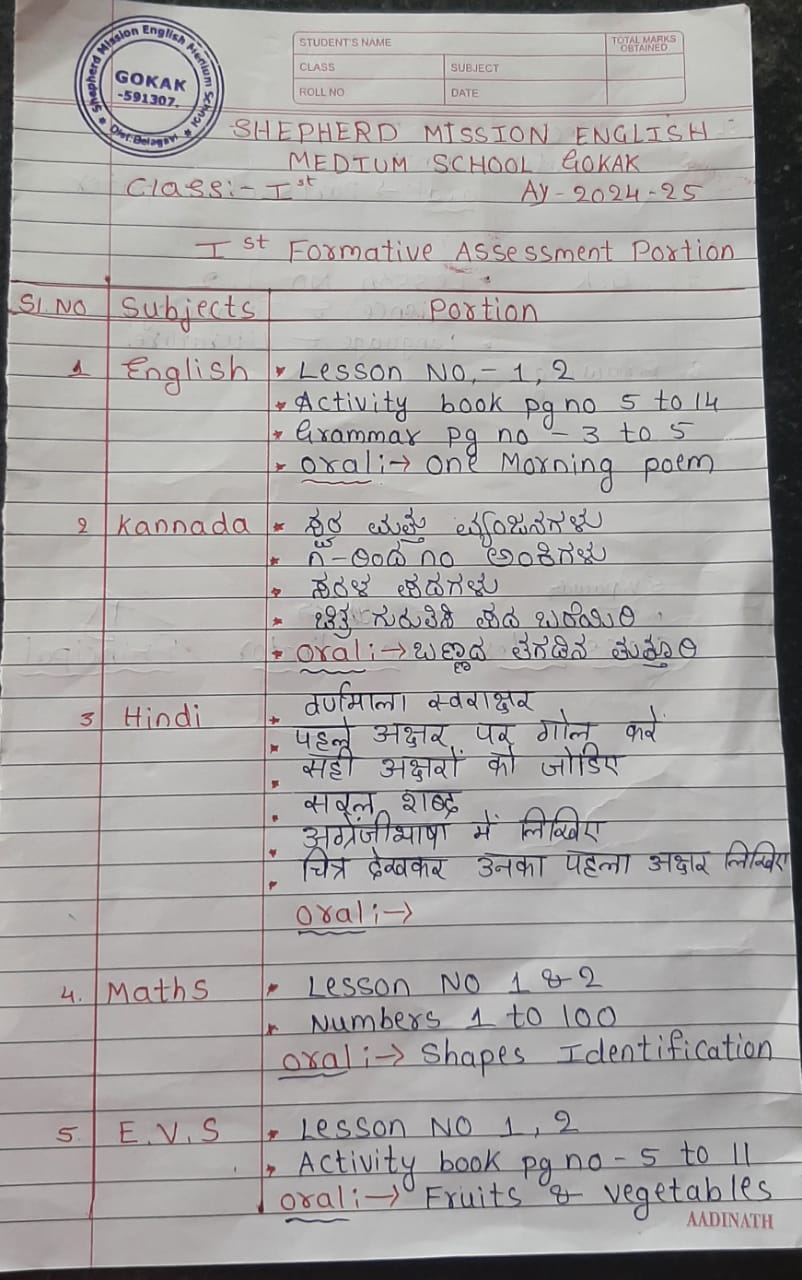 Shepherd Mission English Medium School
GOKAK
-591307.
Dist. Belagavi
STUDENT'S NAME
TOTAL MARKS
OBTAINED
CLASS
SUBJECT
ROLL NO
DATE
SHEPHERD MISSION ENGLISH
MEDIUM SCHOOL GOKAK
Class:- Ist AY-2024-25
Ist Formative Assessment Portion
Sl.NO Subjects Portion
1 English * Lesson NO,- 1, 2
* Activity book pg no 5 to 14
* Grammar pg no - 3 to 5
* Oral :→ One Morning poem
2 Kannada * ಸ್ವರ ಮತ್ತು ವ್ಯಂಜನಗಳು
* ೧-ರಿಂದ ೧೦ ಅಂಕಿಗಳು
* ಸರಳ ಪದಗಳು
* ಚಿತ್ರ ಗುರುತಿಸಿ ಪದ ಬರೆಯಿರಿ
* Oral :→ ಬಣ್ಣದ ತಗಡಿನ ತುತ್ತೂರಿ
3 Hindi * वर्णमाला स्वराक्षर
* पहले अक्षर पर गोल करें
* सही अक्षरों को जोडिए
* सरल शब्द
* अंग्रेजीभाषा में लिखिए
* चित्र देखकर उनका पहला अक्षर लिखिए
Oral :→
4. Maths * Lesson NO 1 & 2
* Numbers 1 to 100
Oral :→ Shapes Identification
5. E.V.S * Lesson NO 1, 2
* Activity book pg no - 5 to 11
Oral :→ Fruits & vegetables
AADINATH